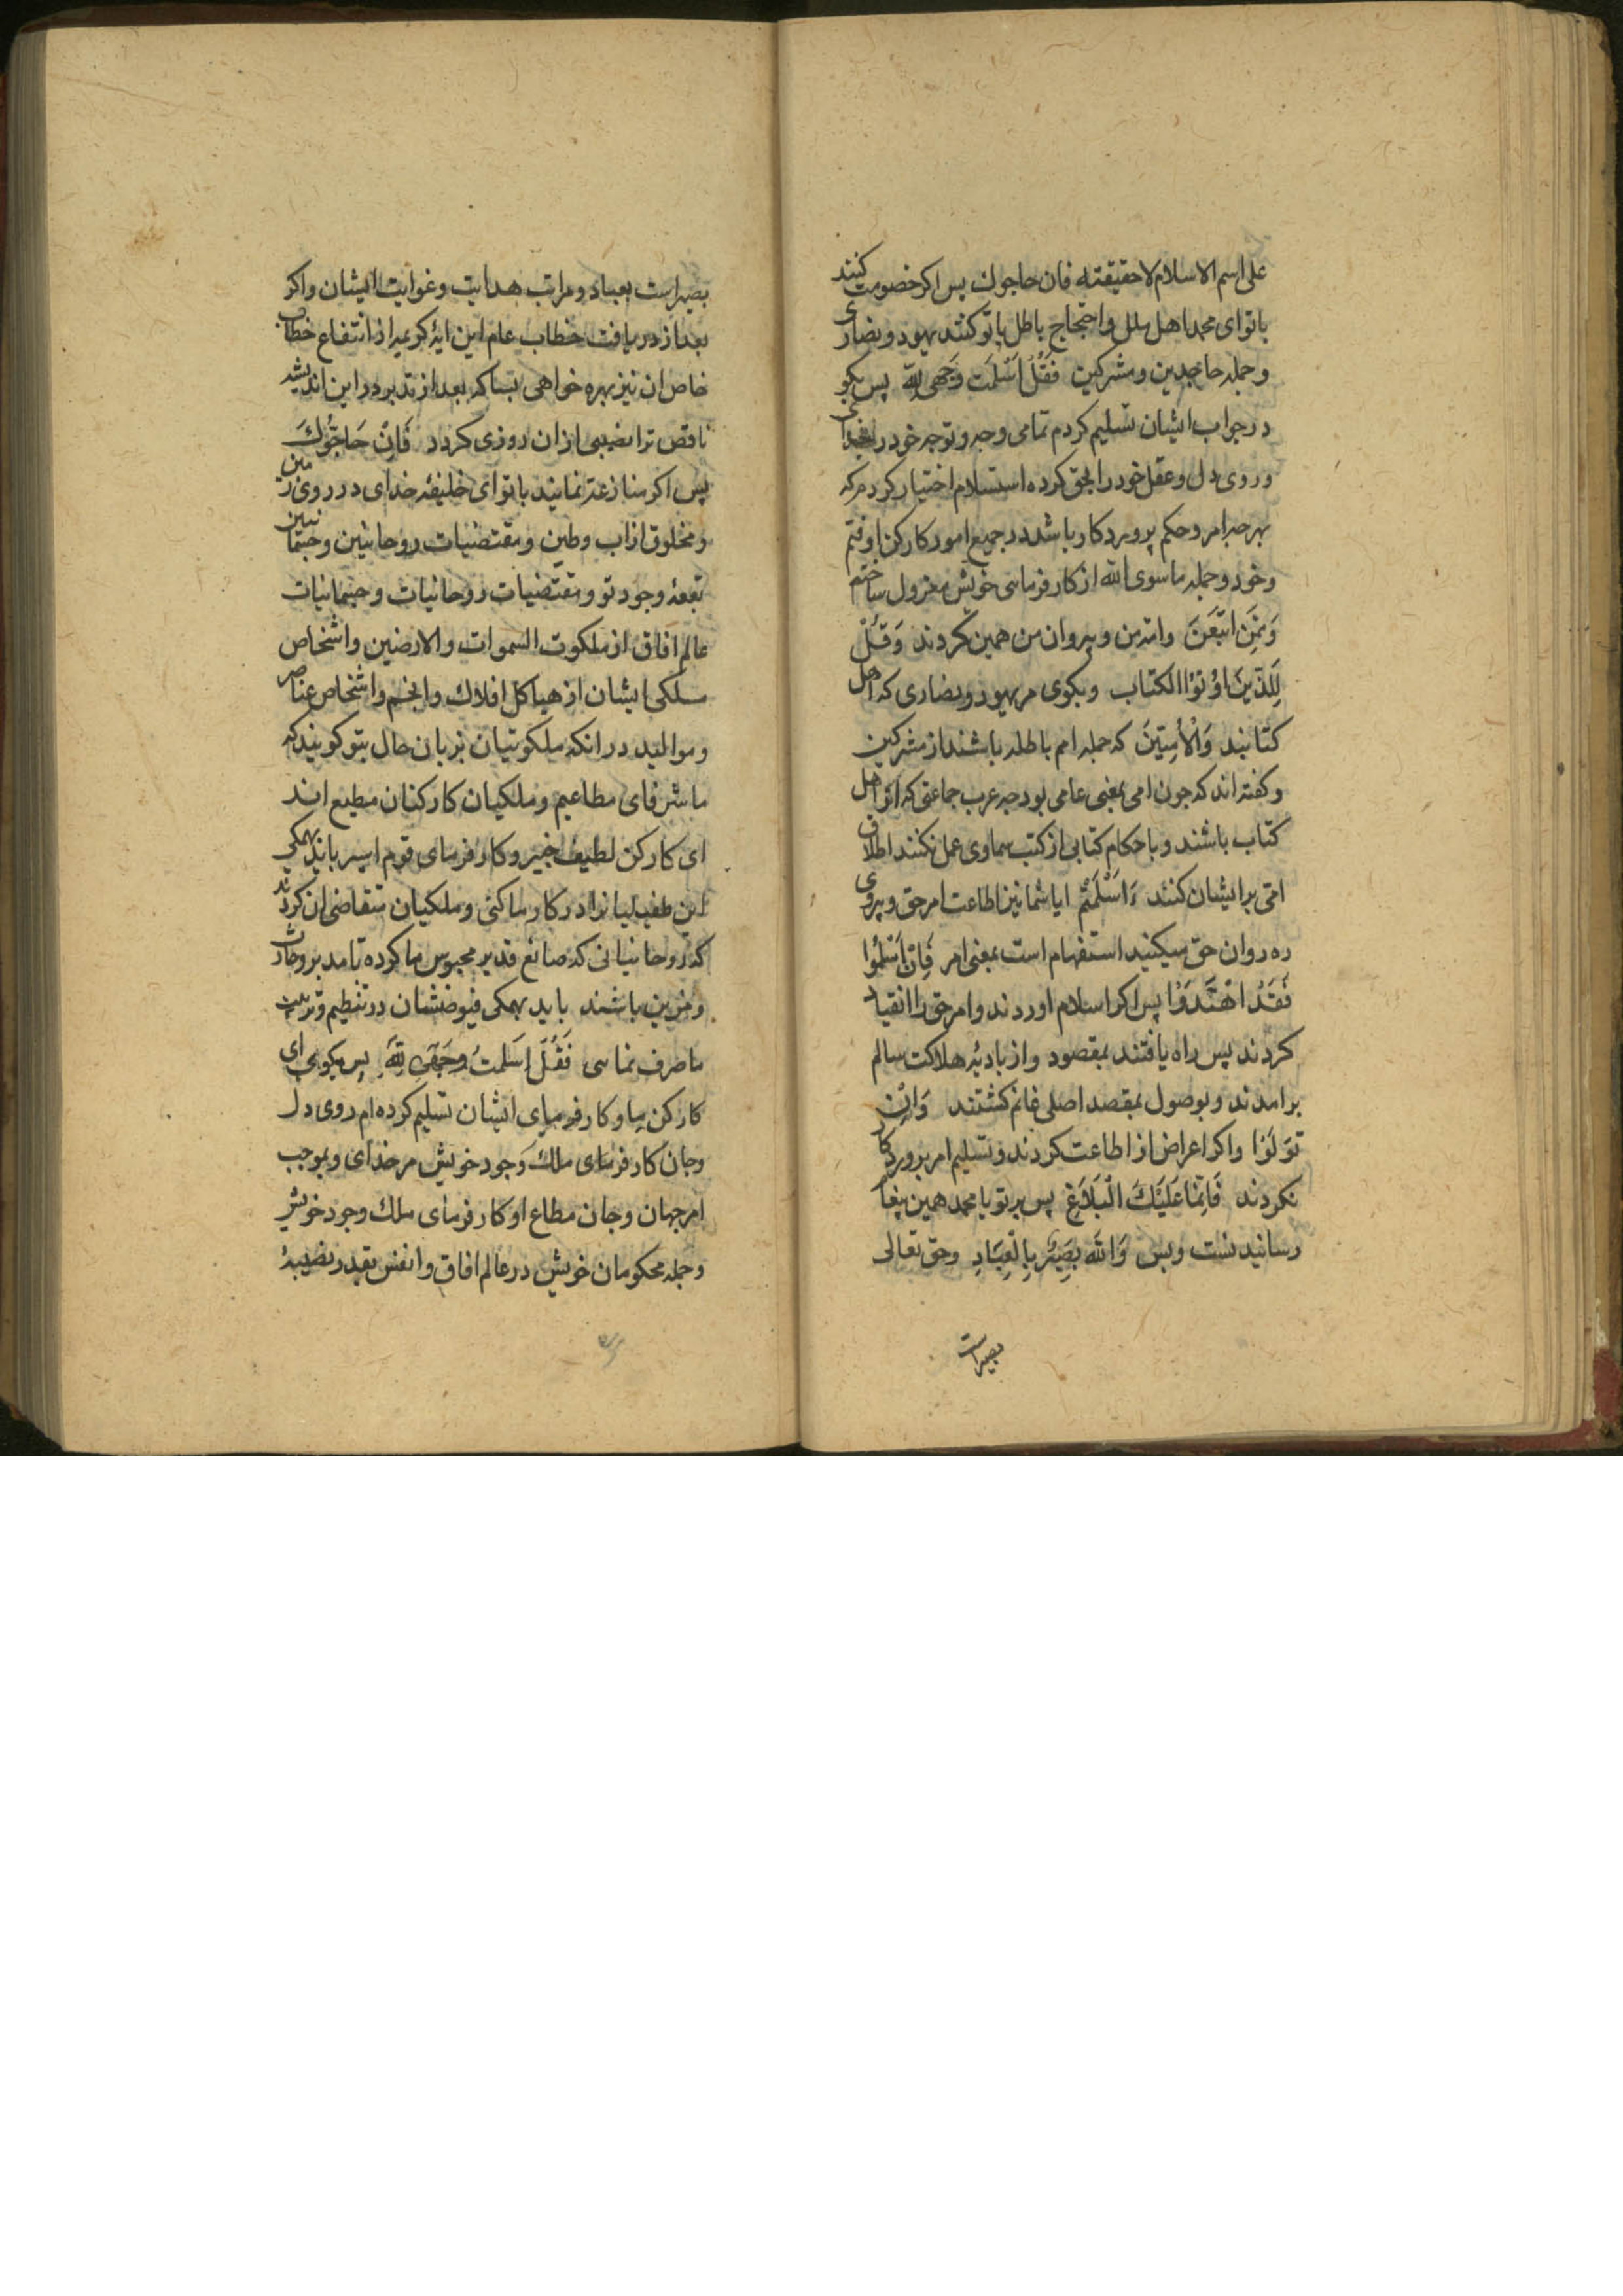 على اسم الاسلام لا حقيقته فان حاجوك پس اكر خصومت كنند
باتو اى محمد اهل ملل واحتجاج باطل باتو كنند يهود ونصارى
وجمله جاحدين ومشركين فَقُلْ اَسْلَمْتُ وَجْهِىَ لِلّهِ پس بكو
در جواب ايشان تسليم كردم تمامى وجه وتوجه خود را بخداى
وروى دل وعقل خود را بحق كرده استسلام اختيار كردم كه
بهر چه امر وحكم پروردكار باشد در جميع امور كاركن او فتم
وخود وجمله ما سوى الله از كار فرماى خويش معزول ساختم
وَمَنِ اتَّبَعَنِ وامت من وپيروان من همين كردند وَقُلْ
لِلَّذِينَ اُوتُوْا الْكتاب وبكوى مر يهود ونصارى كه اهل
كتابند وَالْأُمِّيِّينَ كه جمله امم باطله باشند از مشركين
وكفته اند كه چون امى بمعنى عامى بود چه عرب جماعتى كه اهل
كتاب باشند وباحكام كتابى از كتب سماوى عمل نكنند اطلاق
امى بر ايشان كنند ءَاَسْلَمْتُمْ ايا شما نيز اطاعت امر حق وپيروى
ره روان حق ميكنيد استفهام است بمعنى امر فَاِنْ اَسْلَمُوا
فَقَدْ اهْتَدَوْا پس اكر اسلام اوردند وامر حق را انقياد
كردند پس راه يافتند بمقصود واز باديۀ هلاكت سالم
برامدند وبوصول بمقصد اصلى غانم كشتند وَاِنْ
تَوَلَّوْا واكر اعراض از اطاعت كردند وتسليم امر پروردكار
نكردند فَاِنَّمَا عَلَيْكَ الْبَلَاغُ پس بر تو يا محمد همين پيغام
رسانيدنست وبس وَاللهُ بَصِيرٌ بِالْعِبَادِ وحق تعالى
بصيراست
بصيراست بعباد ومراتب هدايت وغوايت ايشان واكر
بعد از دريافت خطاب عام اين ايۀ كريمه از انتفاع خطاب
خاص ان نيز بهره خواهى بساكه بعد از تدبر در اين انديشه
ناقص ترا نصيبى از ان روزى كردد فَاِنْ حَاجُّوكَ
پس اكر منازعه نمايند باتو اى خليفۀ خداى در روى زمين
ومخلوق از اب وطين ومقتضيات روحانيين وجسمانيين
بقعۀ وجود تو ومقتضيات روحانيات وجسمانيات
عالم افاق از ملكوت السموات والارضين واشخاص
سلكى ايشان از هياكل افلاك وانجم واشخاص عناصر
ومواليد در انكه ملكوتيان بزبان حال بتو كويند كه
ما شرفاى مطاعيم وملكيان كاركنان مطيع اند
اى كاركن لطيف خبير وكار فرماى قوم اسير بايد بهمكى
اين طفيليانرا در كار ما كنى وملكيان متقاضى ان كردند
كه روحانيانى كه صانع قدير محبوس ما كرده تا مدبر وحارث
ومزين باشند بايد بهمكى فيوضشان در تنظيم وتربيت
ما صرف نماى فَقُلْ اَسْلَمْتُ وَجْهِىَ لِلّهِ پس بكوى اى
كاركن ما وكار فرماى ايشان تسليم كرده ام روى دل
وجان كار فرماى ملك وجود خويش مر خداى وبموجب
امر جهان وجان مطاع او كار فرماى ملك وجود خويش
وجمله محكومان خويش در عالم افاق وانفس بقدر نصيبۀ